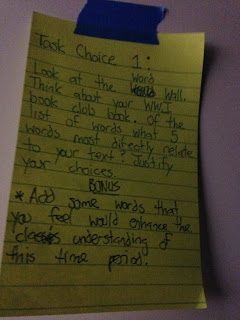 Task Choice 1:
Look at the Word Wall.
Think about your WWI
book club book. Of the
list of words what 5
words most directly relate
to your text? Justify
your choices.
BONUS
* Add some words that
you feel would enhance the
class's understanding of
this time period.